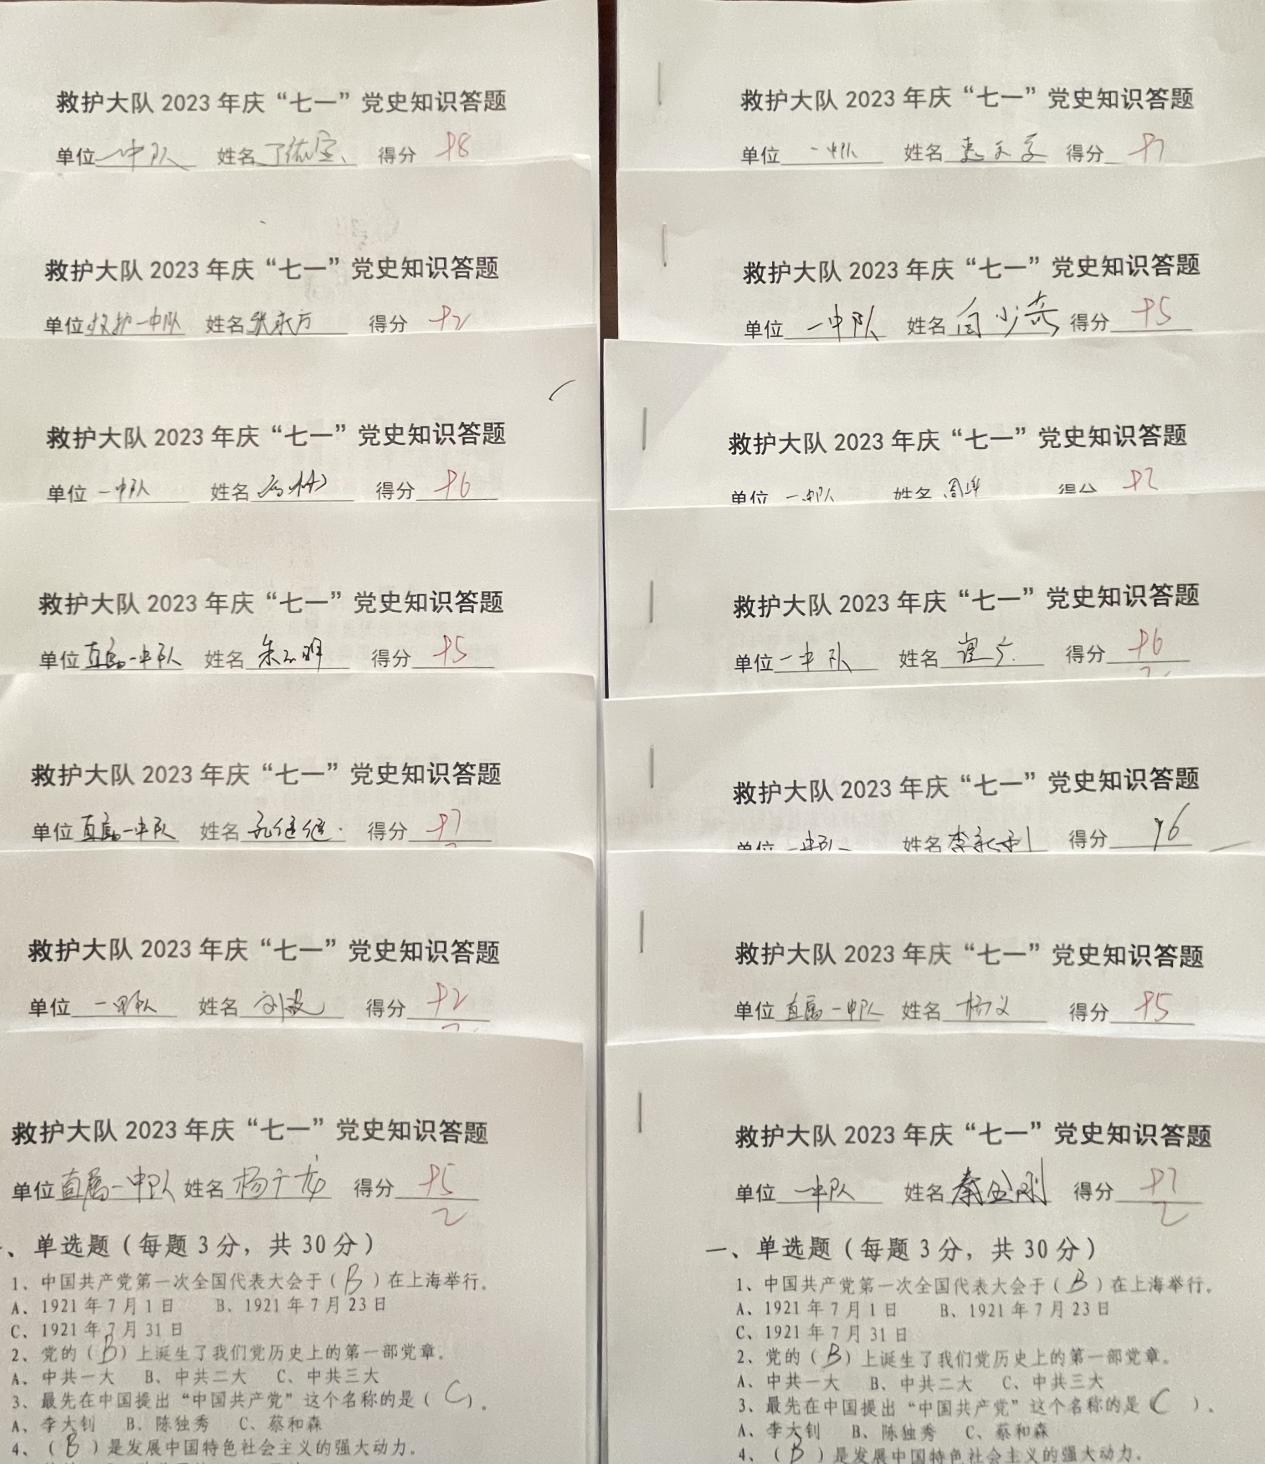 救护大队 2023 年庆“七一”党史知识答题
单位 一中队 姓名 得分 98
救护大队 2023 年庆“七一”党史知识答题
单位 救护一中队 姓名 张永方 得分 92
救护大队 2023 年庆“七一”党史知识答题
单位 一中队 姓名 得分 96
救护大队 2023 年庆“七一”党史知识答题
单位 直属一中队 姓名 朱 明 得分 95
救护大队 2023 年庆“七一”党史知识答题
单位 直属一中队 姓名 孔继继 得分 97
救护大队 2023 年庆“七一”党史知识答题
单位 一中队 姓名 刘波 得分 92
救护大队 2023 年庆“七一”党史知识答题
单位 直属一中队 姓名 杨广龙 得分 95
2
一、单选题（每题 3 分，共 30 分）
1、中国共产党第一次全国代表大会于（ B ）在上海举行。
A、1921 年 7 月 1 日 B、1921 年 7 月 23 日
C、1921 年 7 月 31 日
2、党的（ B ）上诞生了我们党历史上的第一部党章。
A、中共一大 B、中共二大 C、中共三大
3、最先在中国提出“中国共产党”这个名称的是（ C ）。
A、李大钊 B、陈独秀 C、蔡和森
4、（ B ）是发展中国特色社会主义的强大动力。
救护大队 2023 年庆“七一”党史知识答题
单位 一中队 姓名 得分 97
救护大队 2023 年庆“七一”党史知识答题
单位 一中队 姓名 闫少 得分 95
救护大队 2023 年庆“七一”党史知识答题
单位 一中队 姓名 周 得分 92
救护大队 2023 年庆“七一”党史知识答题
单位 一中队 姓名 得分 96
救护大队 2023 年庆“七一”党史知识答题
单位 一中队 姓名 李永利 得分 96
救护大队 2023 年庆“七一”党史知识答题
单位 直属一中队 姓名 杨义 得分 95
救护大队 2023 年庆“七一”党史知识答题
单位 一中队 姓名 秦金刚 得分 97
2
一、单选题（每题 3 分，共 30 分）
1、中国共产党第一次全国代表大会于（ B ）在上海举行。
A、1921 年 7 月 1 日 B、1921 年 7 月 23 日
C、1921 年 7 月 31 日
2、党的（ B ）上诞生了我们党历史上的第一部党章。
A、中共一大 B、中共二大 C、中共三大
3、最先在中国提出“中国共产党”这个名称的是（ C ）。
A、李大钊 B、陈独秀 C、蔡和森
4、（ B ）是发展中国特色社会主义的强大动力。